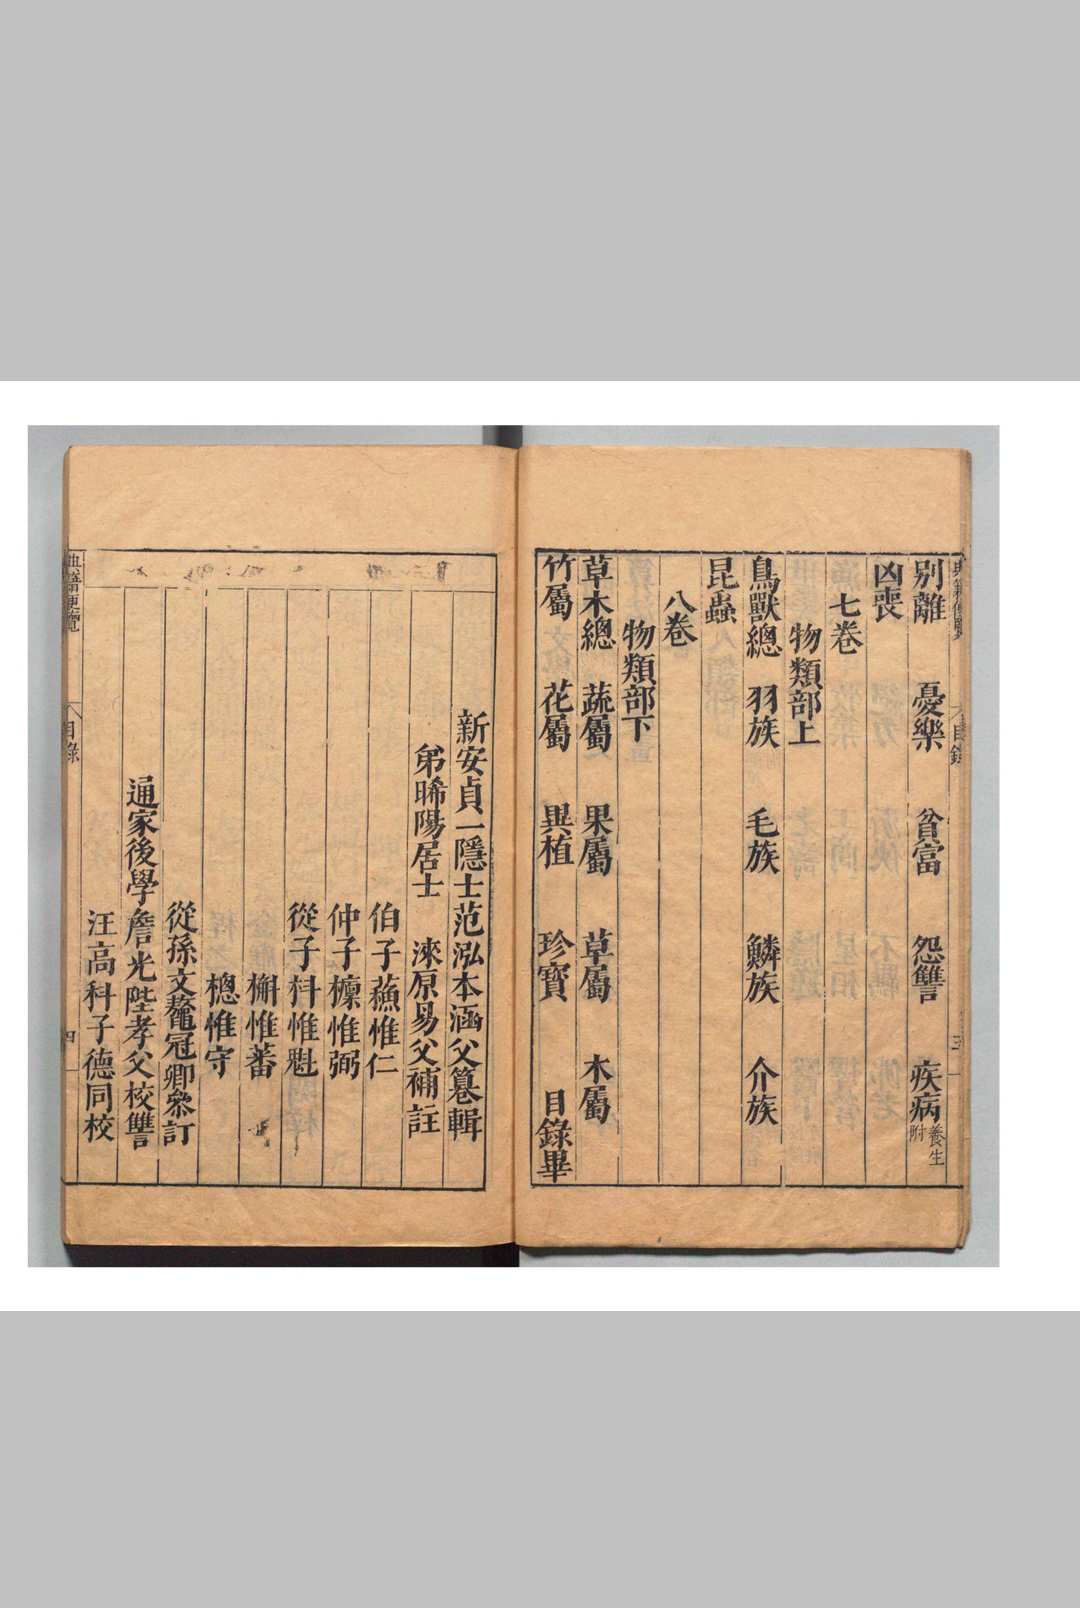 別離　憂樂　貧富　怨讐　疾病養生附
凶喪
七卷
物類部上
鳥獸總　羽族　毛族　鱗族　介族
昆蟲
八卷
物類部下
草木總　蔬屬　果屬　草屬　木屬
竹屬　花屬　異植　珍寶　目錄畢
新安貞一隱士范泓本涵父纂輯
弟晞陽居士　淶原易父補註
伯子蘓惟仁
仲子檁惟弼
從子枓惟魁
槲惟蕃
樬惟守
從孫文鰲冠卿叅訂
通家後學詹光陛孝父校讐
汪高科子德同校
典籍便覽
目錄
四